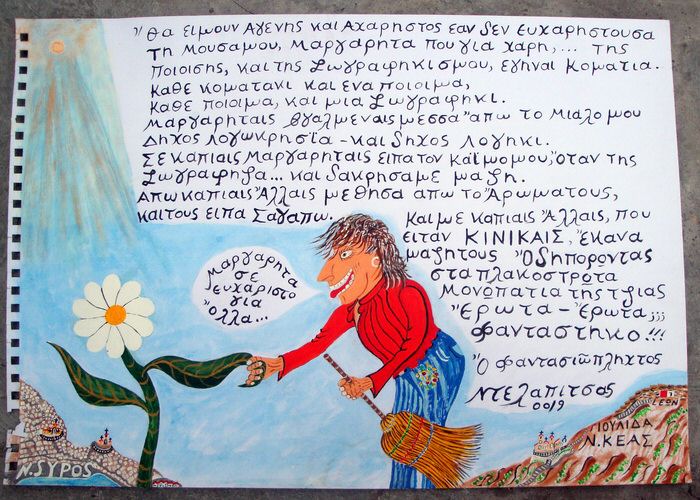 "Θα ειμουν Αγενης και Αχαρηστος εαν δεν ευχαρηστουσα
τη Μουσαμου, Μαργαρητα που για χαρη,... της
Ποιοισης, και της ζωγραφηκισμου, εγηναι κοματια.
Καθε κοματακι και ενα ποιοιμα,
καθε ποιοιμα, και μια ζωγραφηκι.
Μαργαρηταις βγαλμεναις μεσσα απω το μιαλο μου
Δηχος λογωκρησϊα - και δηχος λογηκι.
Σε καπιαις Μαργαρηταις ειπα τον καϊμο μου, όταν της
ζωγραφηζα... και δακρησαμε μαζη.
Απω καπιαις Άλλαις μεθησα απω το Άρωματους,
και τους ειπα Σαγαπω.
Και με καπιαις Άλλαις, που
ειταν ΚΙΝΙΚΑΙΣ, Έκανα
μαζητους Όδηπορον­τας
στα πλακοστρωτα
Μονωπατια της τζιας
Έρωτα - Έρωτα,;;;
Φανταστηκο!!!
Ό Φαντασιωπληχτος
Ντελαπιτσας
0019
Μαργαρητα
σε
ευχαριστο
για
όλλα...
Ν. SYPOS
LEON
ΙΟΥΛΙΔΑ
Ν. ΚΕΑΣ